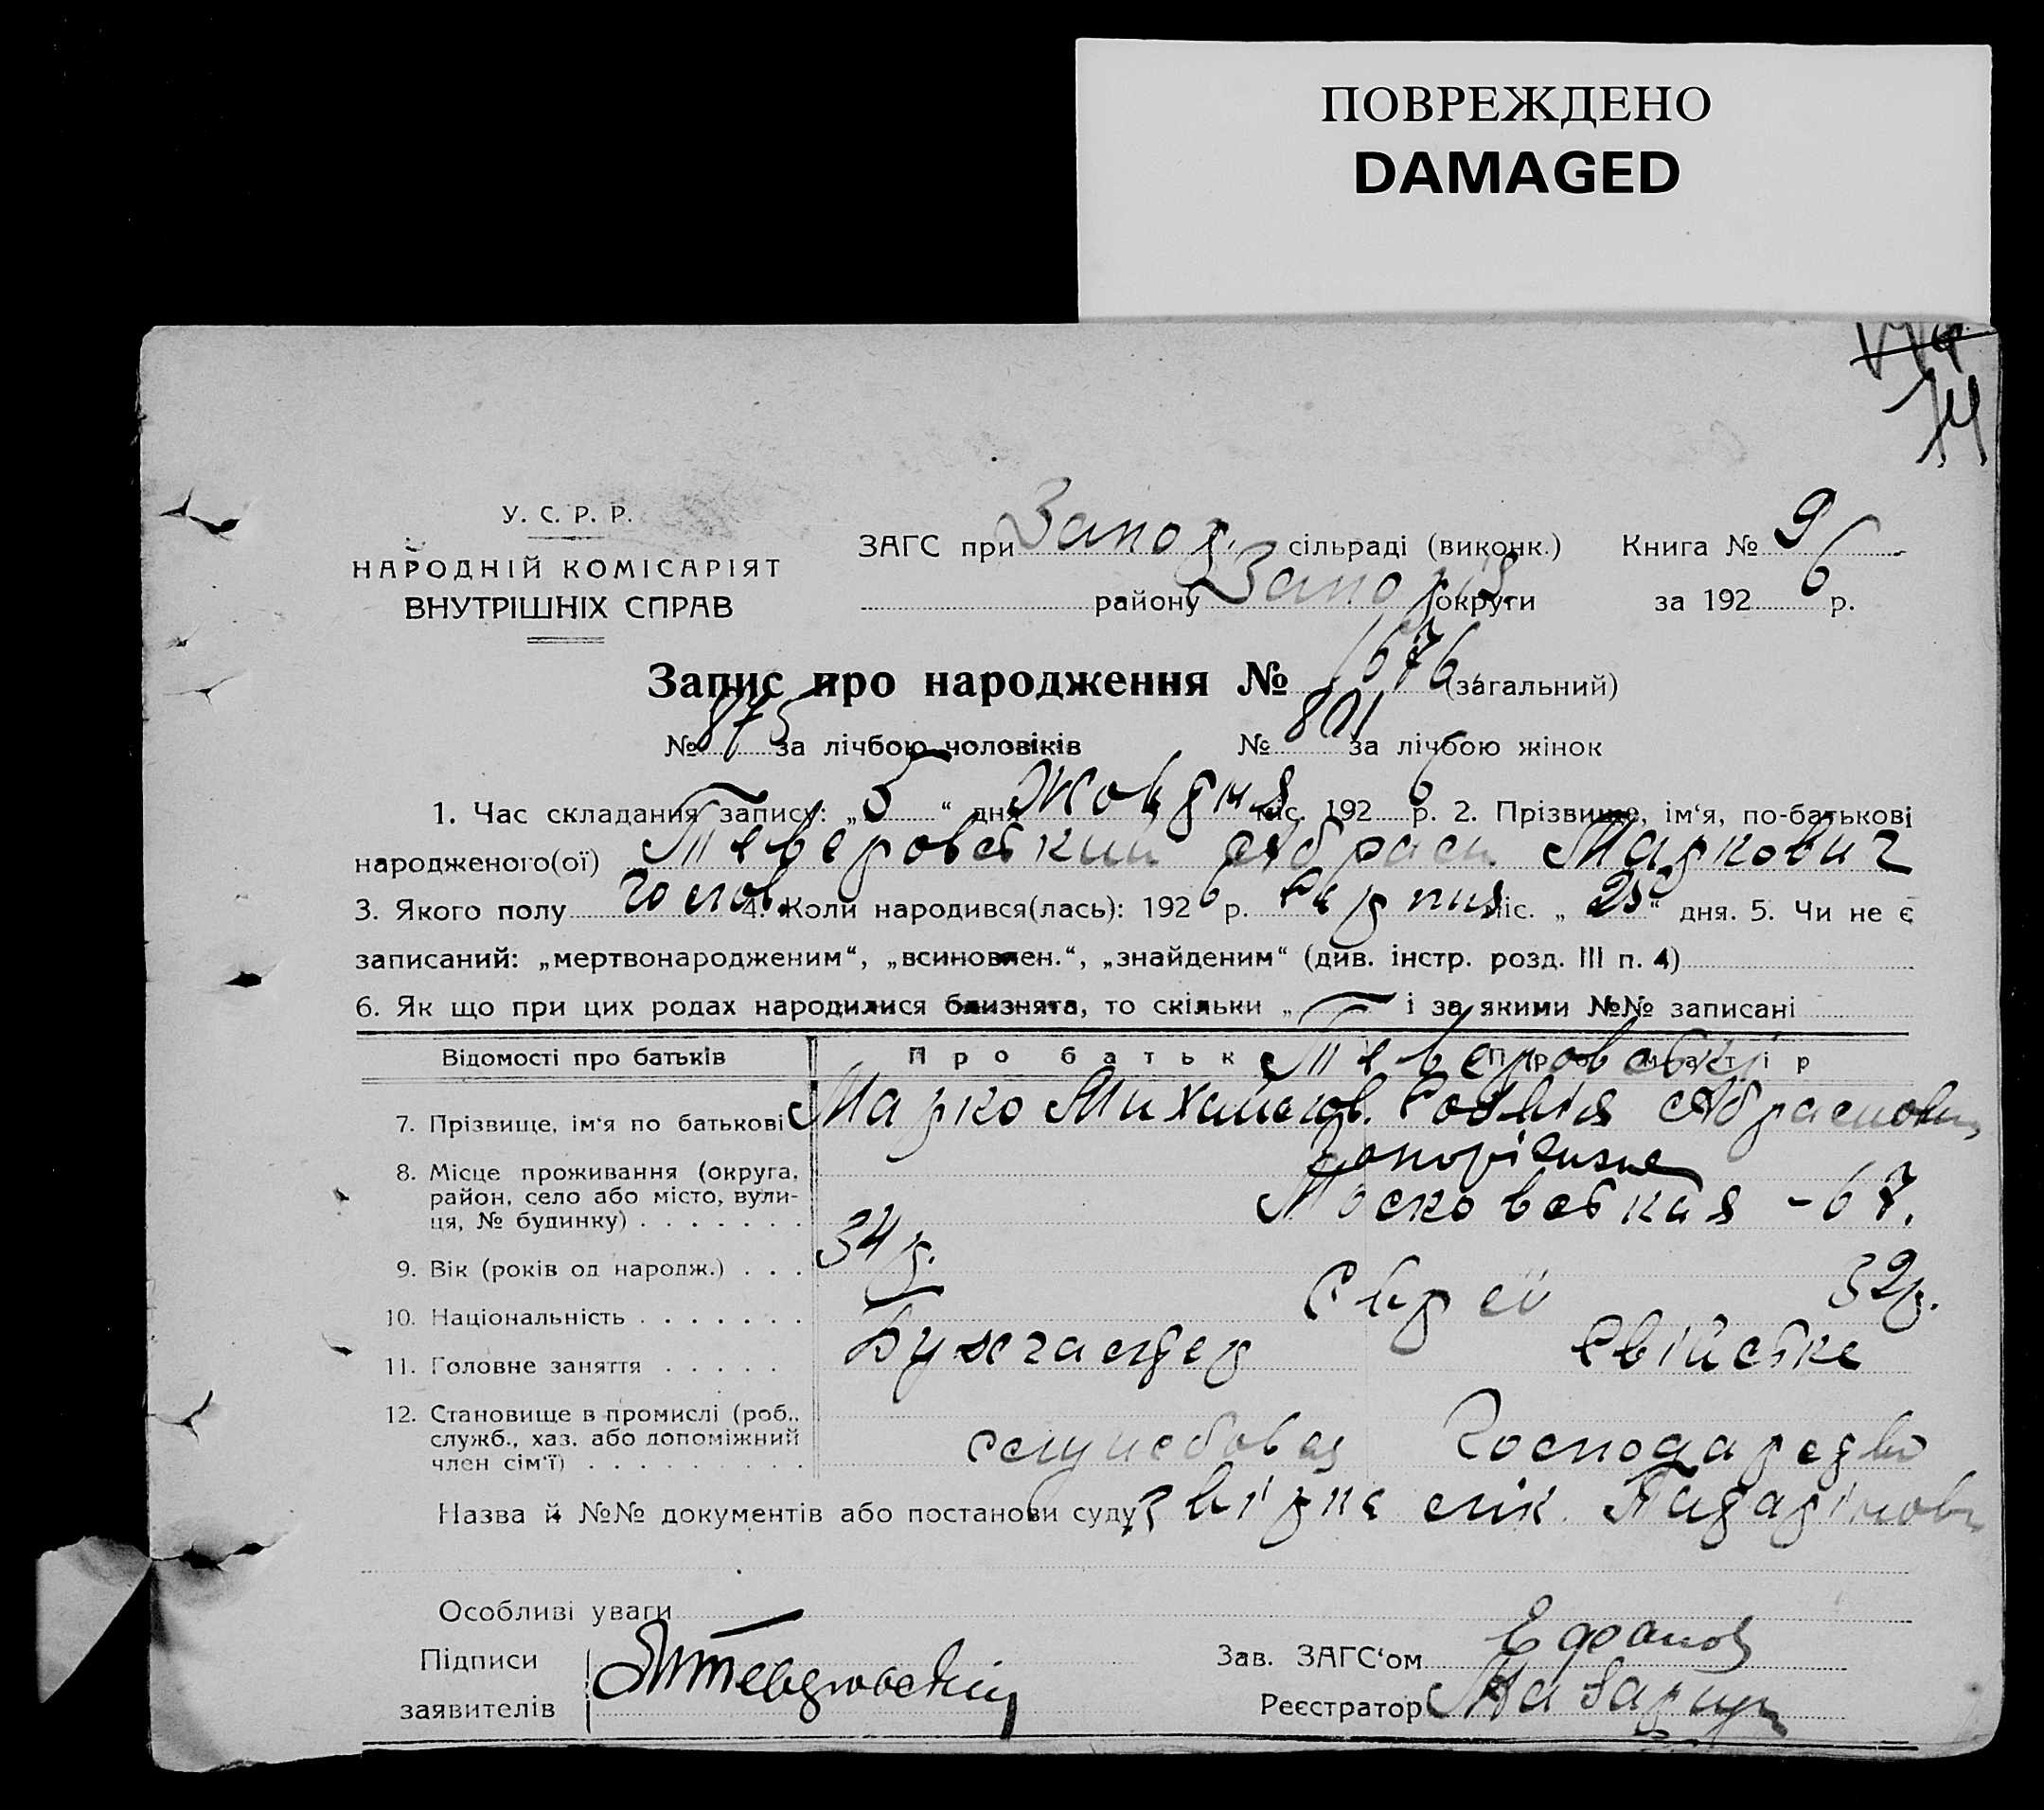 ПОВРЕЖДЕНО
DAMAGED
14
У. С. Р. Р.
НАРОДНІЙ КОМІСАРІЯТ
ВНУТРІШНІХ СПРАВ
ЗАГС при Запор. сільраді (виконк.) Книга № 9
району Запоріз. округи за 1926 р.
Запис про народження № 1676 (загальний)
№ 875 за лічбою чоловіків № 801 за лічбою жінок
1. Час складання запису: „5“ дня Жовдня міс. 1926 р. 2. Прізвище, ім‘я, по-батькові
народженого(ої) Теверовський Абрам Маркович
3. Якого полу чолов. 4. Коли народився(лась): 1926 р. Серпня міс. „25“ дня. 5. Чи не є
записаний: „мертвонародженим“, „всиновлен.“, „знайденим“ (див. інстр. розд. III п. 4)
6. Як що при цих родах народилися близнята, то скільки „ і за якими №№ записані
Відомості про батьків Про батьк Про матір
Теверовські
7. Прізвище, ім‘я по батькові Марко Михайлов. Абрамовн
8. Місце проживання (округа, район, село або місто, вулиця, № будинку) Запоріжжє
Московська - 67.
9. Вік (років од народж.) 34 р. 32 р.
10. Національність Євреї
11. Головне заняття Бухгалтер Свійське
12. Становище в промислі (роб., служб., хаз. або допоміжний член сім‘ї) службовец Господарство
Назва й №№ документів або постанови суду лік.
Особливі уваги
Підписи
заявителів Теверовский
Зав. ЗАГС‘ом
Реєстратор